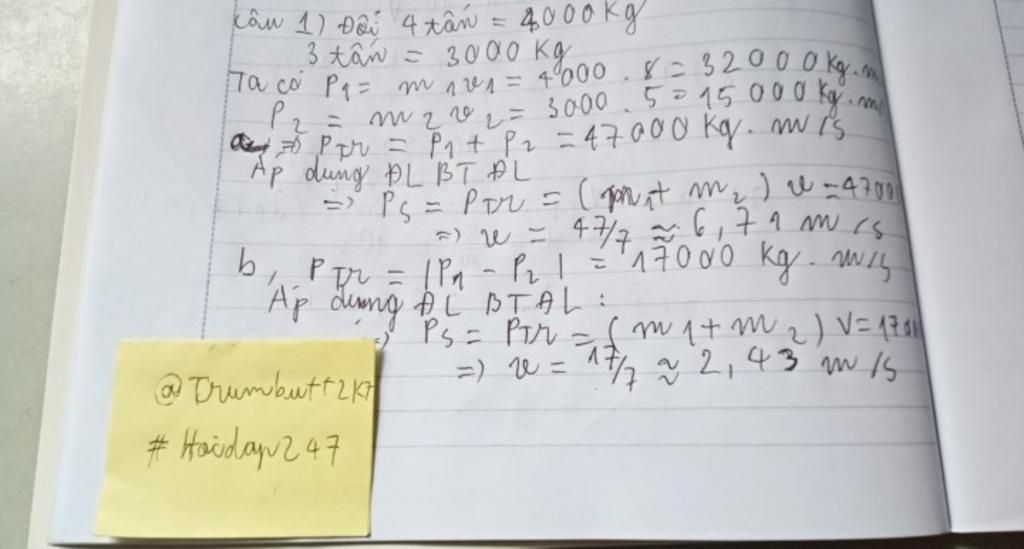 Câu 1) Đổi 4 tấn = 4000 Kg
3 tấn = 3000 Kg
Ta có P1 = m1v1 = 4000 . 8 = 32000 Kg.m
P2 = m2v2 = 3000 . 5 = 15000 Kg.m
a, => PTr = P1 + P2 = 47000 Kg. m/s
Áp dụng ĐL BTĐL
=> PS = PTr = (m1 + m2) v = 4700
=> v = 47/7 ≈ 6,71 m/s
b, PTr = |P1 - P2| = 17000 Kg. m/s
Áp dụng ĐL BTĐL :
=> PS = PTr = (m1 + m2) V = 1700
=> v = 17/7 ≈ 2,43 m/s
@Trumbutt2K7
# Hoidap247